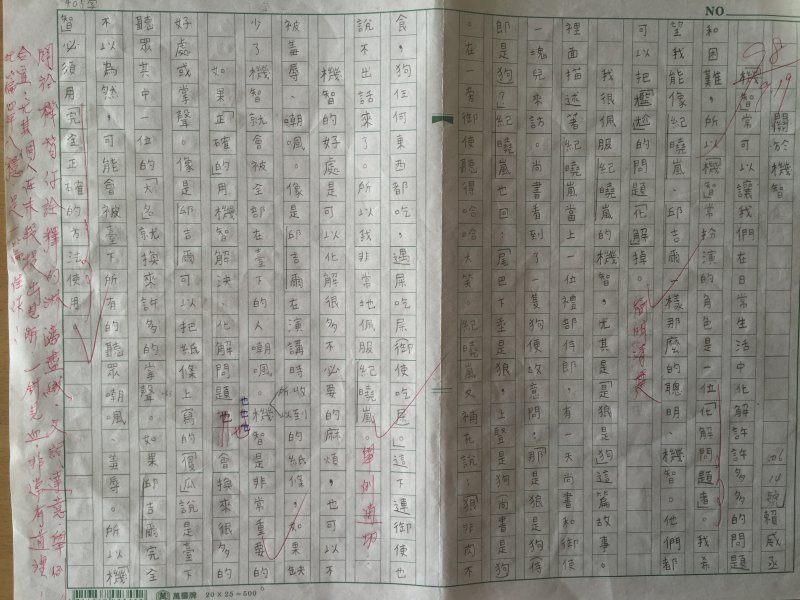 關於機智
14號 賴威丞
機智可以讓我們在日常生活中化解許多的問題
和困難,所以機智常扮演的角色是一位「化解問題者」。我希
望我能像紀曉嵐、邱吉爾一樣那麼的聰明、機智。他們都
可以把尷尬的問題「化解掉」。
我很佩服紀曉嵐的機智,尤其是「狼是狗」這篇故事。
裡面描述著紀曉嵐當上了一位禮部侍郎,有一天尚書和御使
一塊兒來訪。尚書看到了一隻狗便故意問:「那是狼是狗(侍
郎是狗)?」紀曉嵐也回:「尾巴下垂是狼,上聳是狗(尚書是狗)
。」在一旁御使聽得哈哈大笑。紀曉嵐又補充說:「狼非肉不
食,狗任何東西都吃,遇屎吃屎(御使吃屎)。」這下連御使也
說不出話來了。所以我非常地佩服紀曉嵐。
機智的好處是可以化解很多不必要的麻煩,也可以不
被羞辱、嘲諷。像是邱吉爾在演講時所收到的紙條,如果缺
少了機智,就會被全部在臺下的人嘲諷。所以機智是非常重要的
如果正確的用機智解決、化解問題,也會換來很多的
好處或掌聲。像是邱吉爾可以把紙條上寫的「傻瓜」說是臺下
聽眾其中一位的「大名」就換來許多的掌聲。如果邱吉爾完全
不以為然,可能會被臺下所有的聽眾嘲諷、羞辱。所以機
智必須用完全正確的方法使用。
NO.
20 X 25 = 500